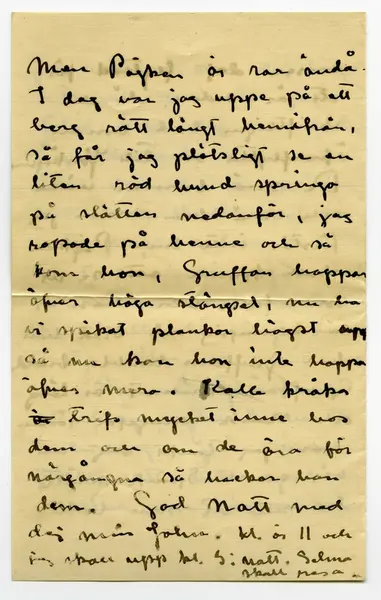 Men Pojken är rar ändå.
I dag var jag uppe på ett
berg rätt långt hemifrån,
så får jag plötsligt se en
liten röd hund springa
på slätten nedanför, jag
ropade på henne och så
kom hon, Gruffan hoppar
öfver höga stängsel, nu ha
vi spikat plankor högst upp
så nu kan hon inte hoppa
öfver mera. Kalle kråka
trifs mycket inne hos
dem och om de äro för
närgångna så hackar han
dem. God Natt med
dej min John. kl. är 11 och
jag skall upp kl. 5 i natt. Selma
skall resa.